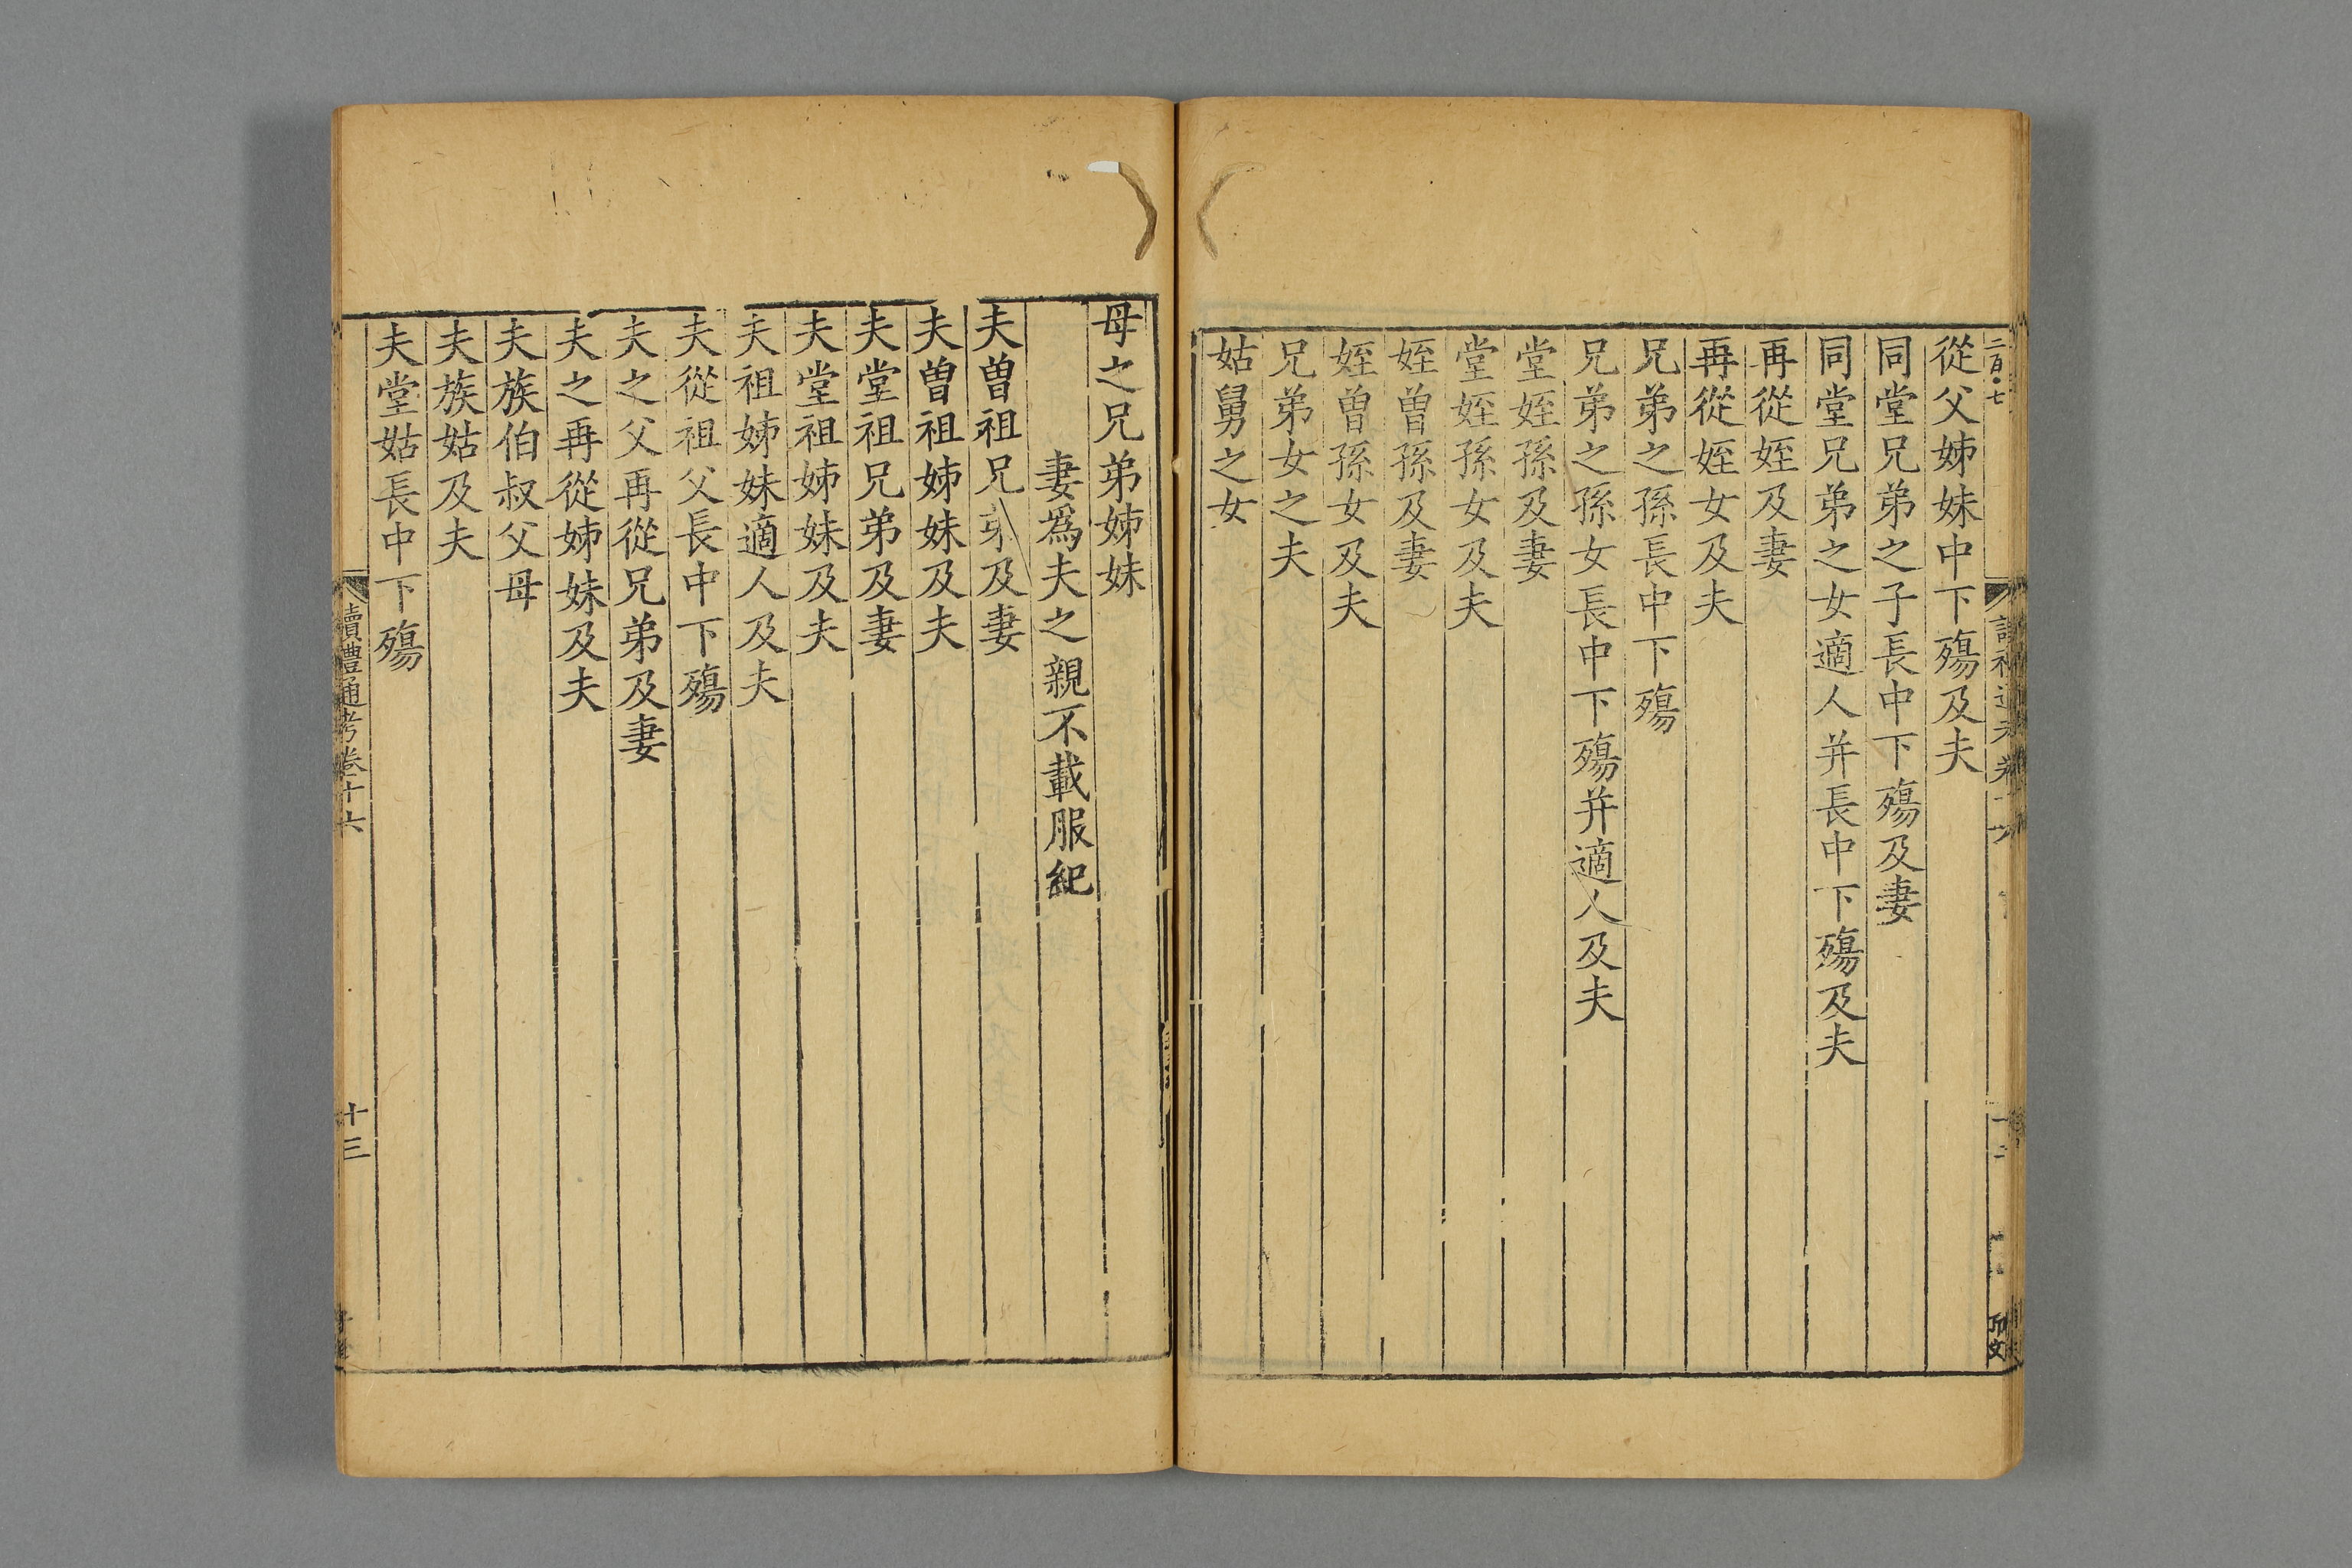 二百〇七
從父姊妹中下殤及夫
同堂兄弟之子長中下殤及妻
同堂兄弟之女適人并長中下殤及夫
再從姪及妻
再從姪女及夫
兄弟之孫長中下殤
兄弟之孫女長中下殤并適人及夫
堂姪孫及妻
堂姪孫女及夫
姪曾孫及妻
姪曾孫女及夫
兄弟女之夫
姑舅之女
母之兄弟姊妹
妻爲夫之親不載服紀
夫曾祖兄弟及妻
夫曾祖姊妹及夫
夫堂祖兄弟及妻
夫堂祖姊妹及夫
夫祖姊妹適人及夫
夫從祖父長中下殤
夫之父再從兄弟及妻
夫之再從姊妹及夫
夫族伯叔父母
夫族姑及夫
夫堂姑長中下殤
讀禮通考卷十六
十三